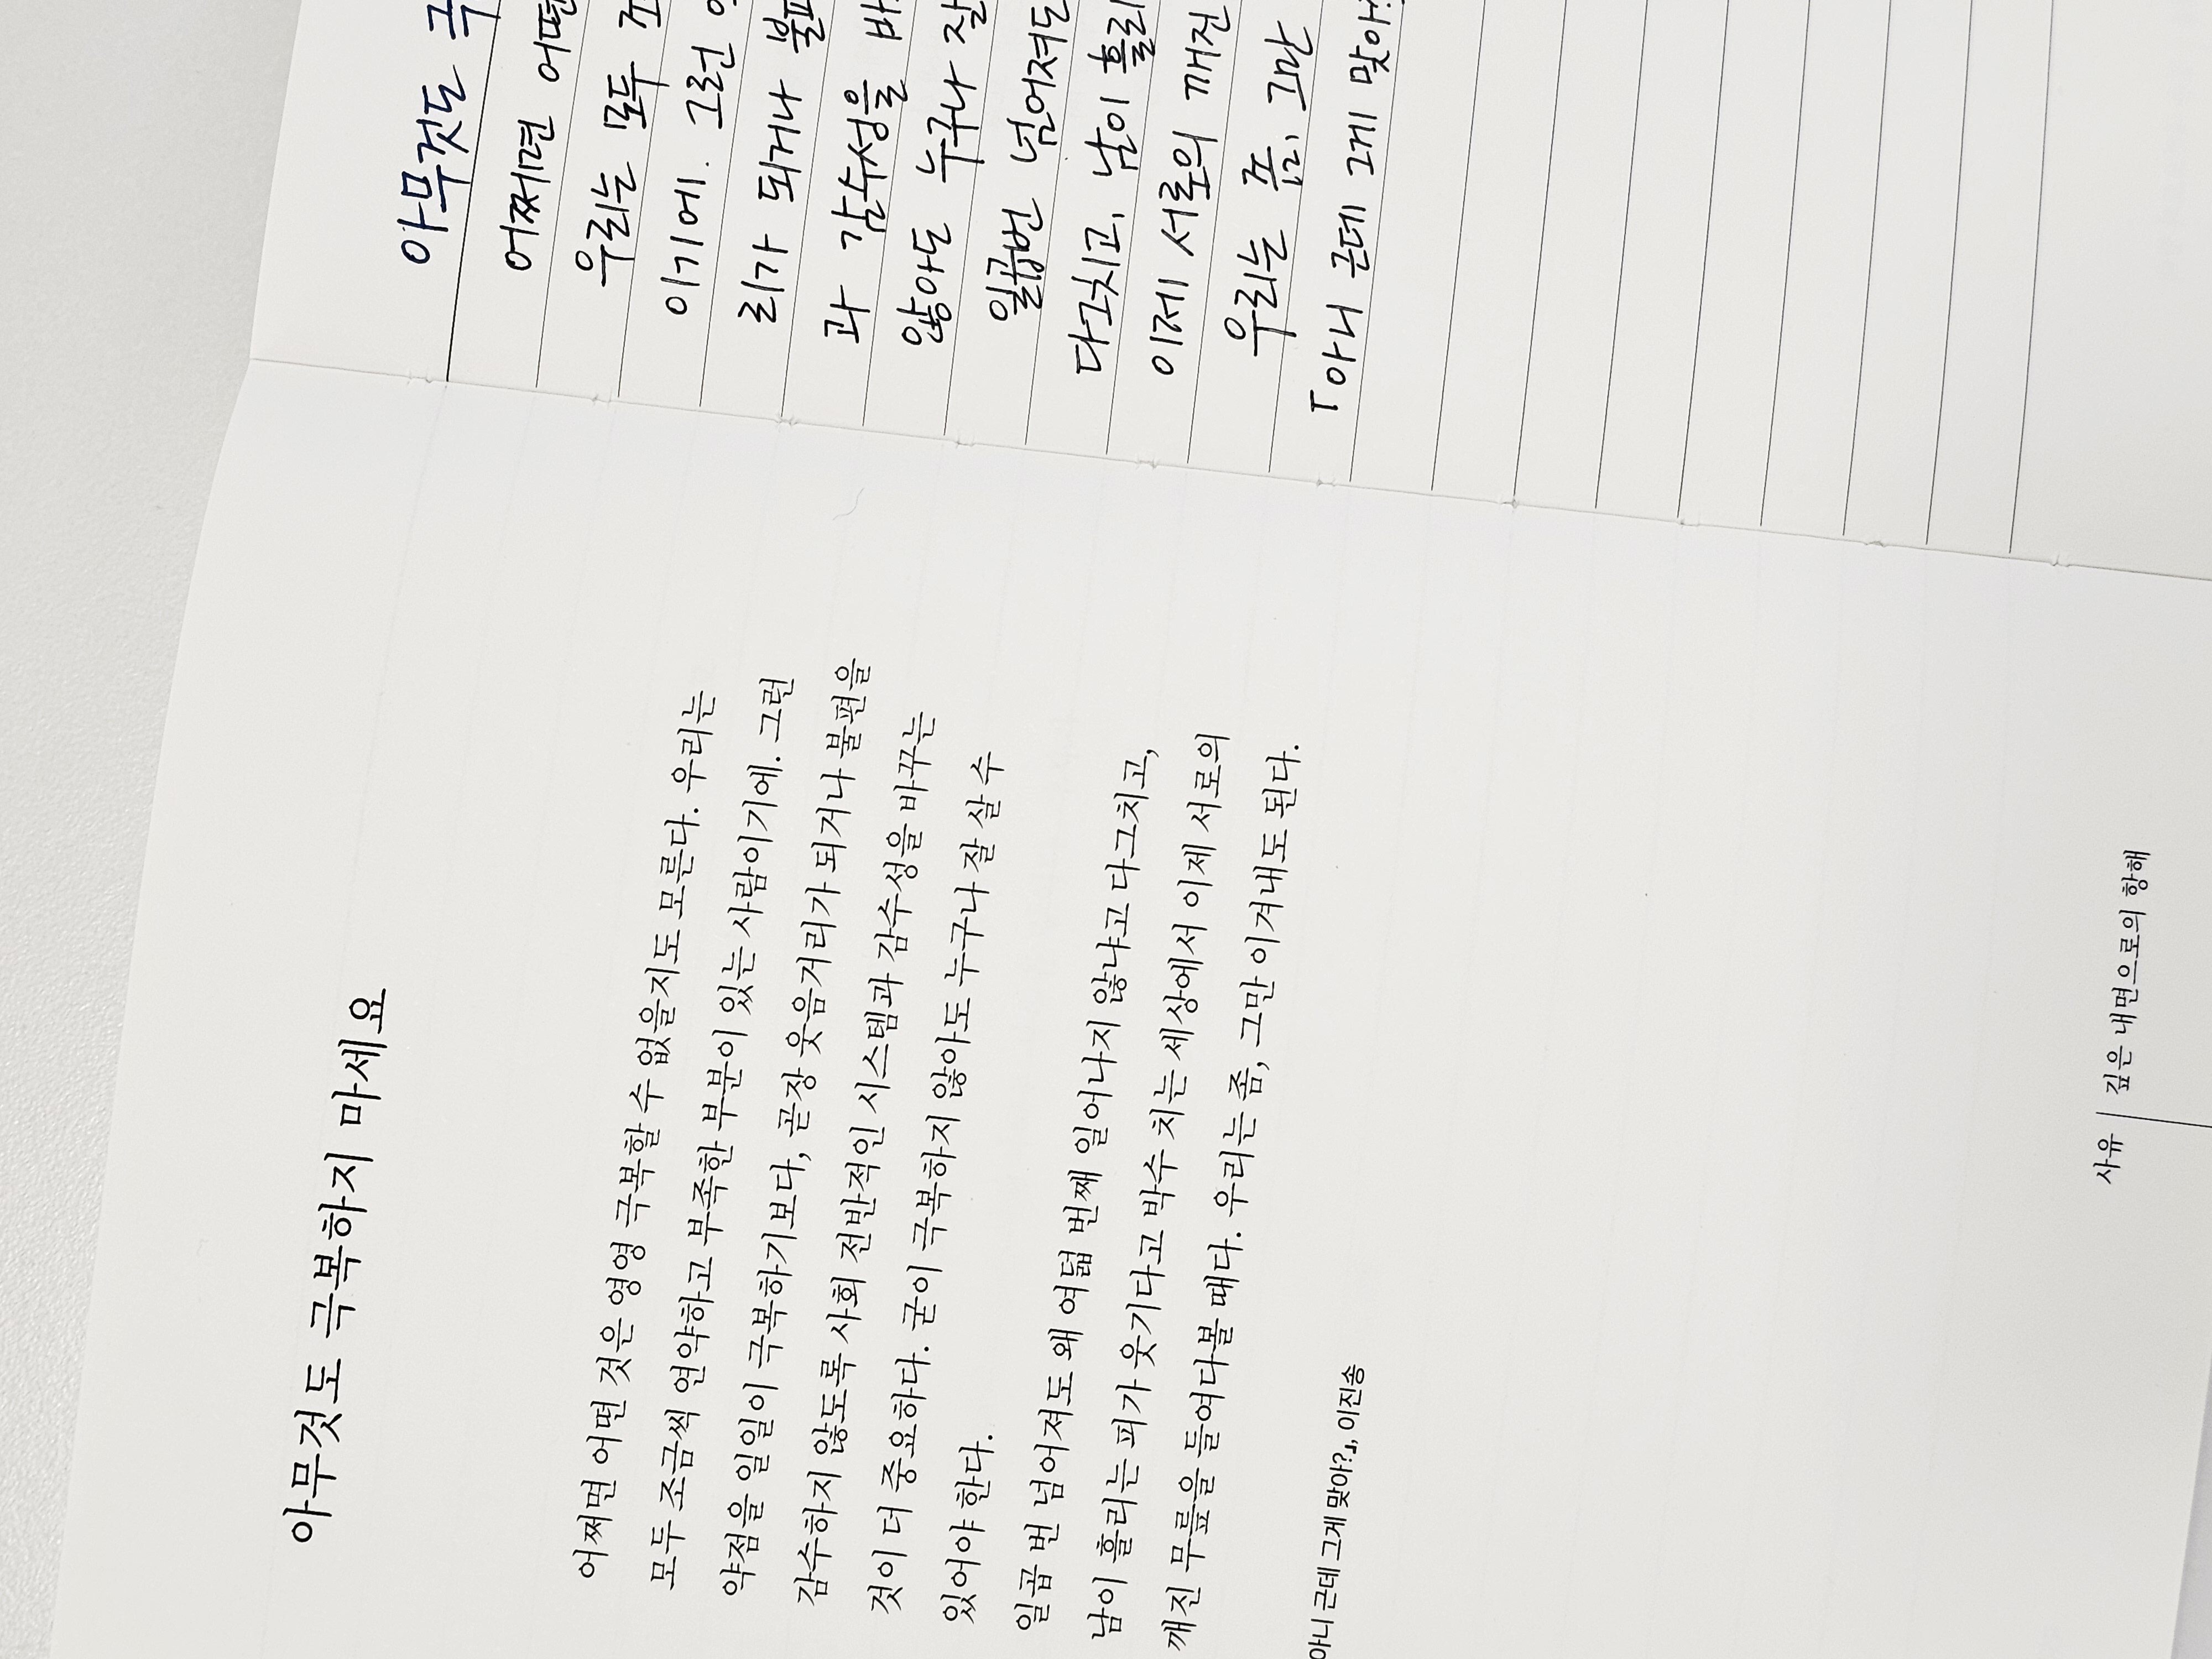 아무것도 극복하지 마세요
어쩌면 어떤 것은 영영 극복할 수 없을지도 모른다. 우리는
모두 조금씩 연약하고 부족한 부분이 있는 사람이기에. 그런
약점을 일일이 극복하기보다, 곧장 웃음거리가 되거나 불편을
감수하지 않도록 사회 전반적인 시스템과 감수성을 바꾸는
것이 더 중요하다. 굳이 극복하지 않아도 누구나 잘 살 수
있어야 한다.
일곱 번 넘어져도 왜 여덟 번째 일어나지 않냐고 다그치고,
남이 흘리는 피가 웃기다고 박수 치는 세상에서 이제 서로의
깨진 무릎을 들여다볼 때다. 우리는 좀, 그만 이겨내도 된다.
아니 근데 그게 맞아?』, 이진송
사유 | 깊은 내면으로의 항해
아무것도 극
어쩌면 어떤
우리는 모두 조
이기에. 그런
리가 되거나 불
과 감수성을 바
않아도 누구나 잘
일곱번 넘어져도
다그치고, 남이 흘리
이제 서로의 깨진
우리는 좀, 그만
「아니 근데 그게 맞아?